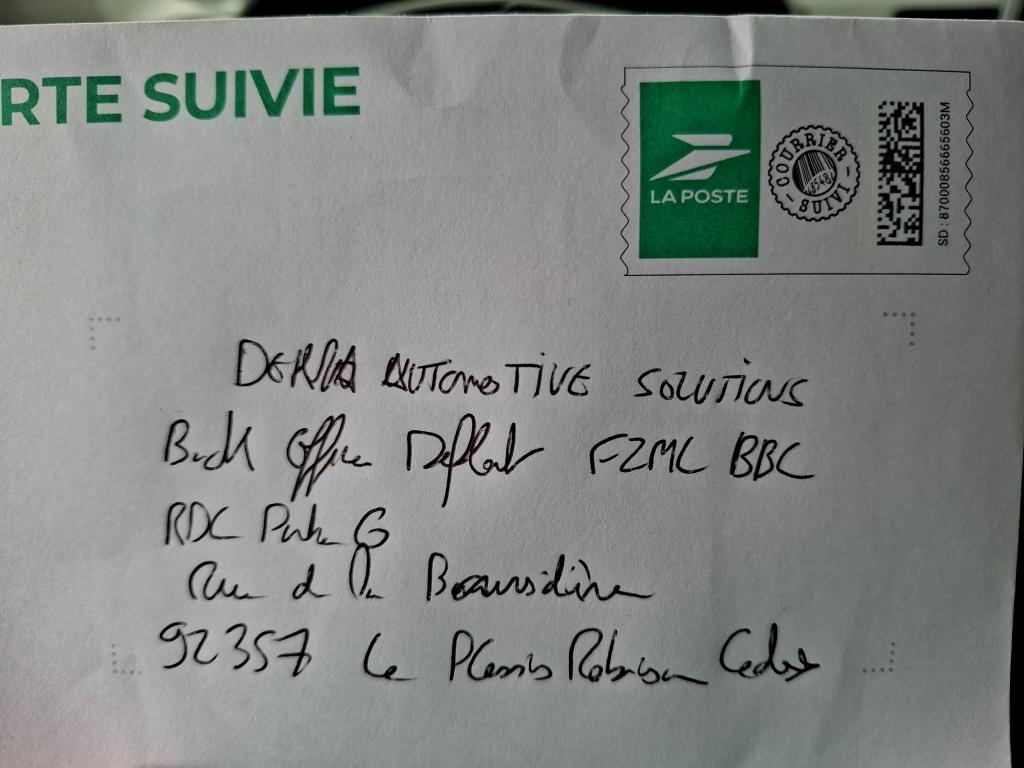 RTE SUIVIE
LA POSTE
COURRIER SUIVI
SD : 87000856665603M
AUTOMOTIVE SOLUTIONS
Back Office Deflot FZMC BBC
RDC Porte G
Rue de la
92357 Le Plessis Robinson Cedex